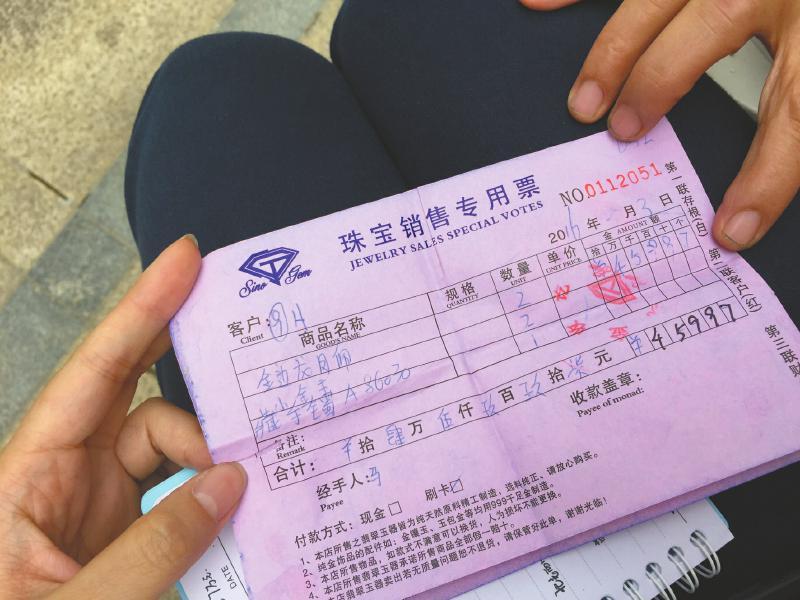 珠宝销售专用票
JEWELRY SALES SPECIAL VOTES
NO.0112051
Sino Gem
2016年 3日
客户:
Client
商品名称
GOOD'S NAME
规格
QUANTITY
数量
UNIT
单价
UNIT PRICE
金 AMOUNT 额
拾万千百十个
45997
2
2
1
A 3600
备注:
Remark
¥45997
合计: 拾肆万伍仟玖百玖拾柒元
经手人:冯
Payee
收款盖章:
Payee of monad:
付款方式: 现金□ 刷卡☑
1、本店所售之翡翠玉器皆为纯天然原料精工制造,选料纯正、请放心购买。
2、纯金饰品的配件如:金镶玉、玉包金等均用999千足金制造。
3、本店所售物品,如款式不满意可以换货,人为损坏不能更换。
4、本店所售翡翠玉器承诺所售商品全部假一赔十。
本店翡翠玉器卖出若无质量问题恕不退货,请保管好此单,谢谢光临!
第一联存根(白)
第二联客户(红)
第三联财
DATE